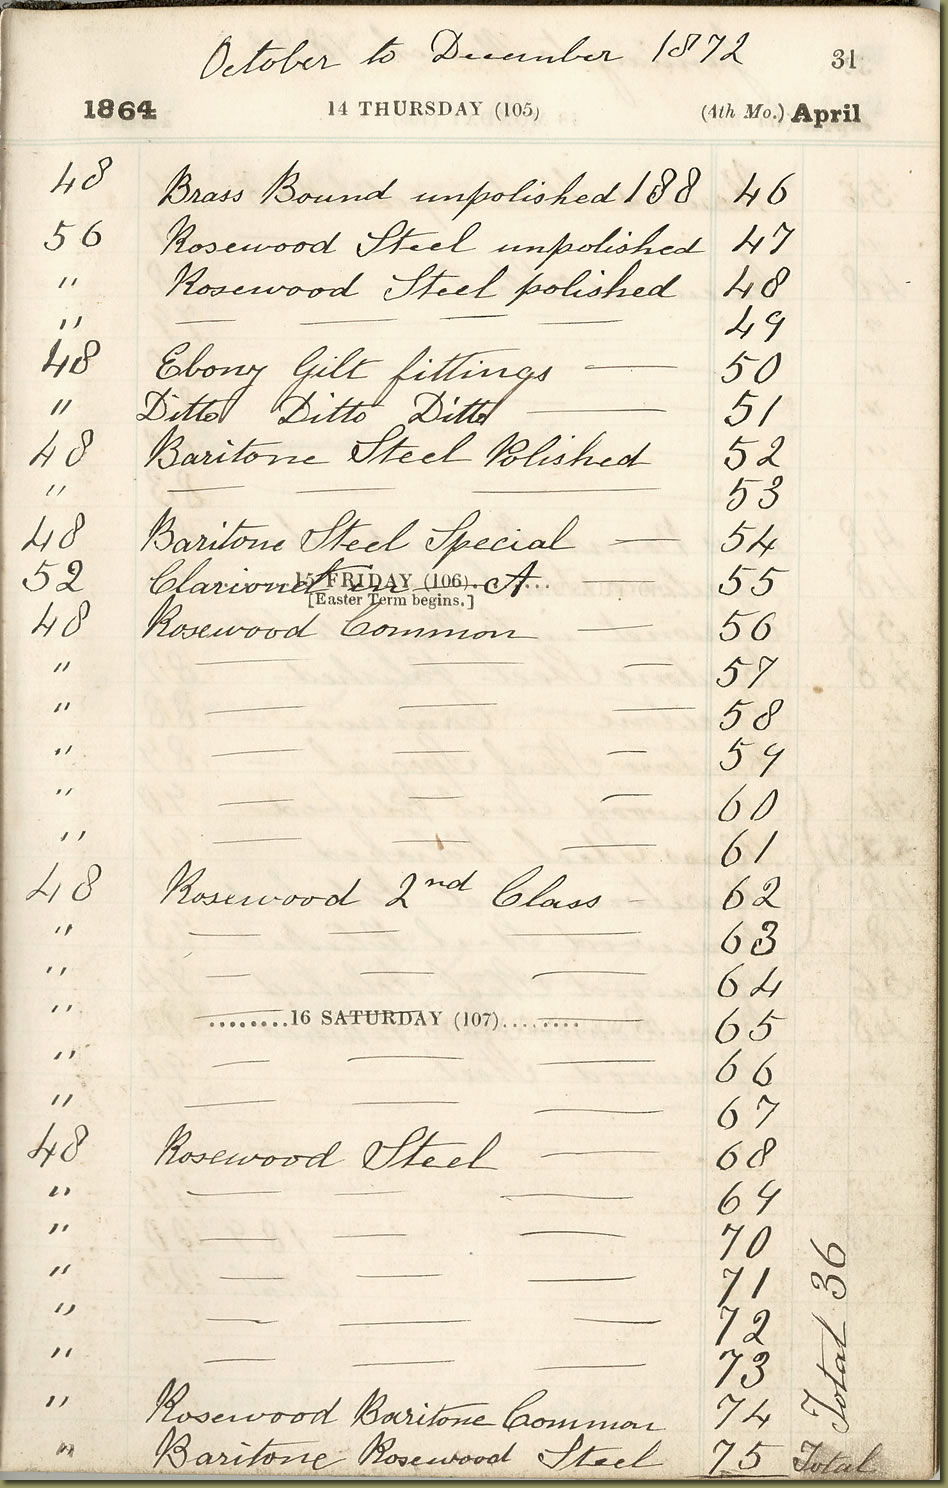 October to December 1872 31
1864 14 THURSDAY (105) (4th Mo.) April
48 Brass Bound unpolished 188 46
56 Rosewood Steel unpolished 47
" Rosewood Steel polished 48
" — — — — 49
48 Ebony Gilt fittings — 50
" Ditto Ditto Ditto — 51
48 Baritone Steel Polished 52
" — — — 53
48 Baritone Steel Special — 54
15 FRIDAY (106)
52 Clarionet in A — 55
[Easter Term begins.]
48 Rosewood Common — 56
" — — — 57
" — — — 58
" — — — 59
" — — — 60
" — — — 61
48 Rosewood 2nd Class - 62
" — — — 63
" — — — 64
........16 SATURDAY (107)........
" — — — 65
" — — — 66
" — — — 67
48 Rosewood Steel — 68
" — — — 69
" — — — 70
" — — — 71
" — — — 72
" — — — 73
" Rosewood Baritone Common 74
" Baritone Rosewood Steel 75 Total
Total 36